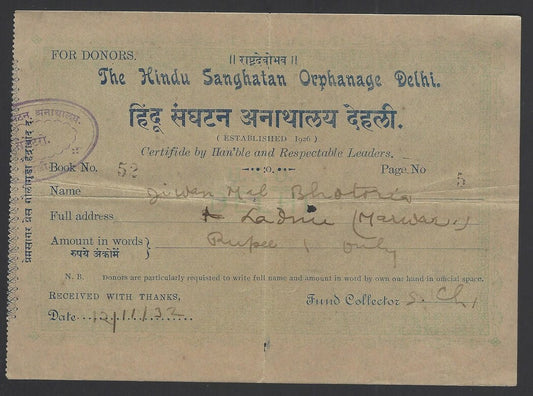 FOR DONORS.
॥ राष्ट्रदेवोभव ॥
The Hindu Sanghatan Orphanage Delhi.
हिंदू संघटन अनाथालय देहली.
( ESTABLISHED 1926 )
Certifide by Han'ble and Respectable Leaders.
Book No. 52 Page No 5
Name Jiwan Mal Bhotoria
Full address Ladnu (Marwar.)
Amount in words Rupee 1 only
रुपये अंकोमें
N. B. Donors are particularly requisted to write full name and amount in word by own our hand in official space.
RECEIVED WITH THANKS,
Fund Collector
Date 12/11/32